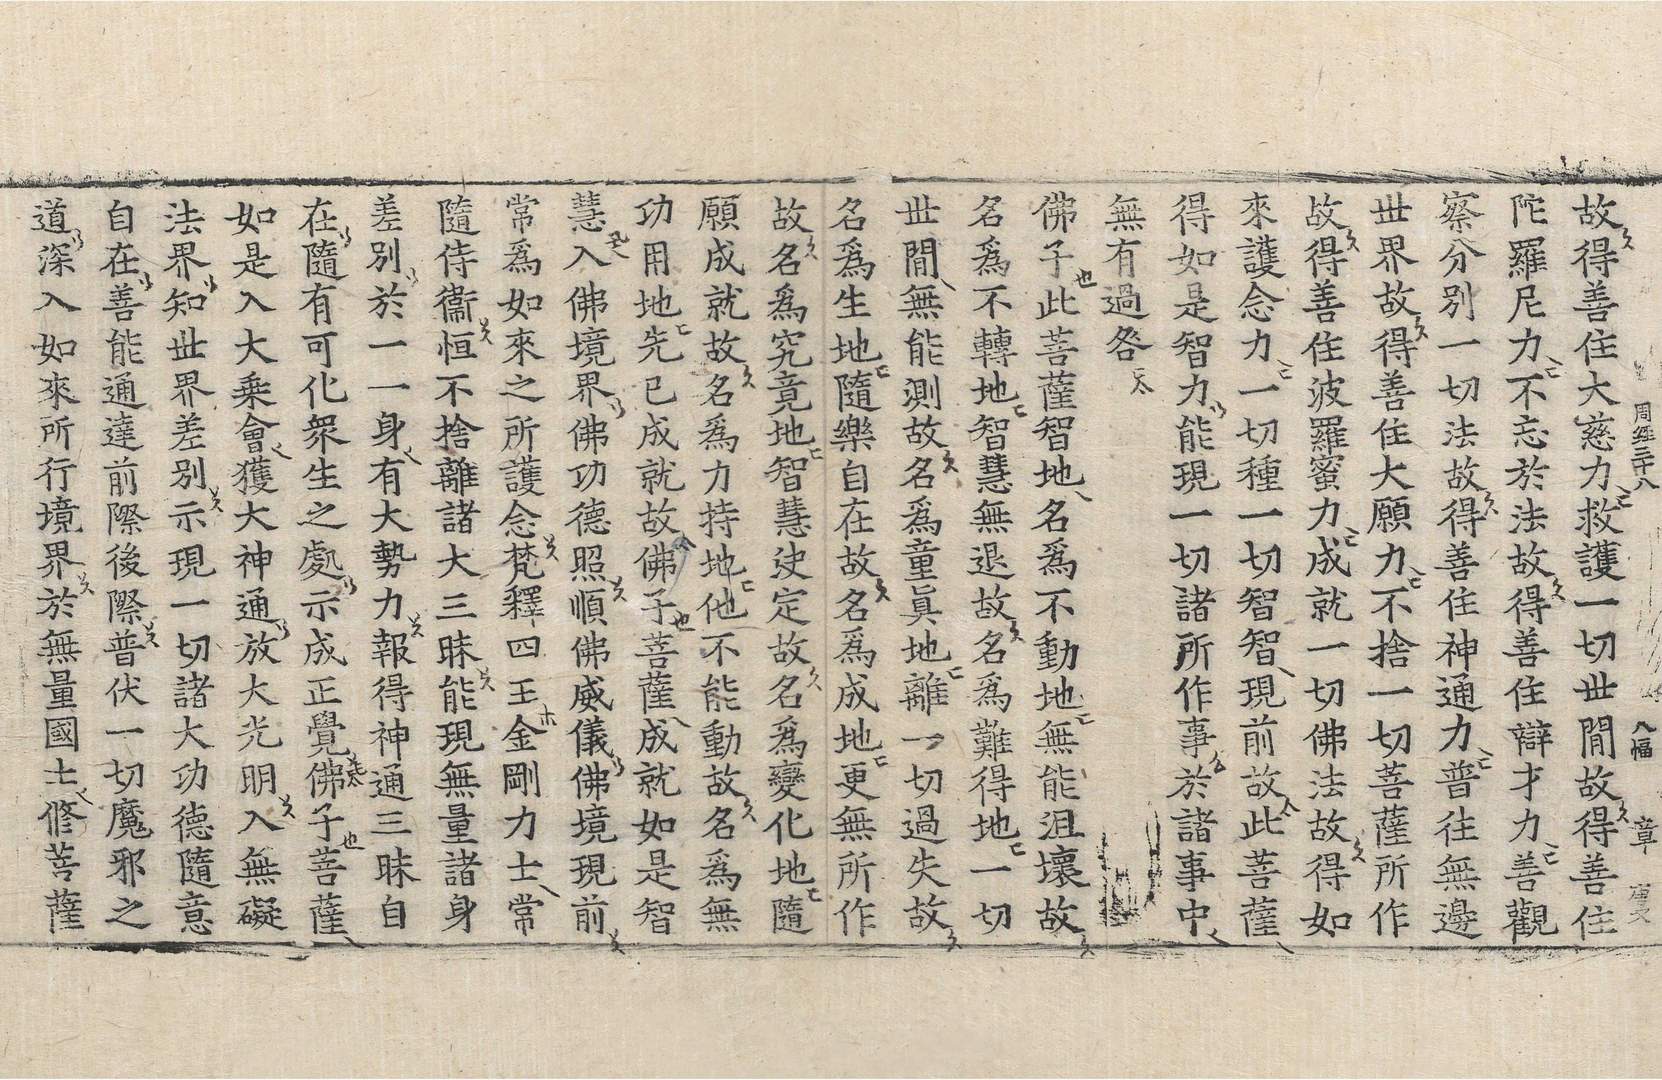 周經三十八 八幅 章
故得善住大慈力救護一切世間故得善住
陀羅尼力不忘於法故得善住辯才力善觀
察分別一切法故得善住神通力普往無邊
世界故得善住大願力不捨一切菩薩所作
故得善住波羅蜜力成就一切佛法故得如
來護念力一切種一切智智現前故此菩薩
得如是智力能現一切諸所作事於諸事中
無有過咎
佛子此菩薩智地名為不動地無能沮壞故
名為不轉地智慧無退故名為難得地一切
世間無能測故名為童眞地離一切過失故
名為生地隨樂自在故名為成地更無所作
故名為究竟地智慧決定故名為變化地隨
願成就故名為力持地他不能動故名為無
功用地先已成就故佛子菩薩成就如是智
慧入佛境界佛功德照順佛威儀佛境現前
常為如來之所護念梵釋四王金剛力士常
隨侍衞恒不捨離諸大三昧能現無量諸身
差別於一一身有大勢力報得神通三昧自
在隨有可化衆生之處示成正覺佛子菩薩
如是入大乘會獲大神通放大光明入無礙
法界知世界差別示現一切諸大功德隨意
自在善能通達前際後際普伏一切魔邪之
道深入如來所行境界於無量國土修菩薩